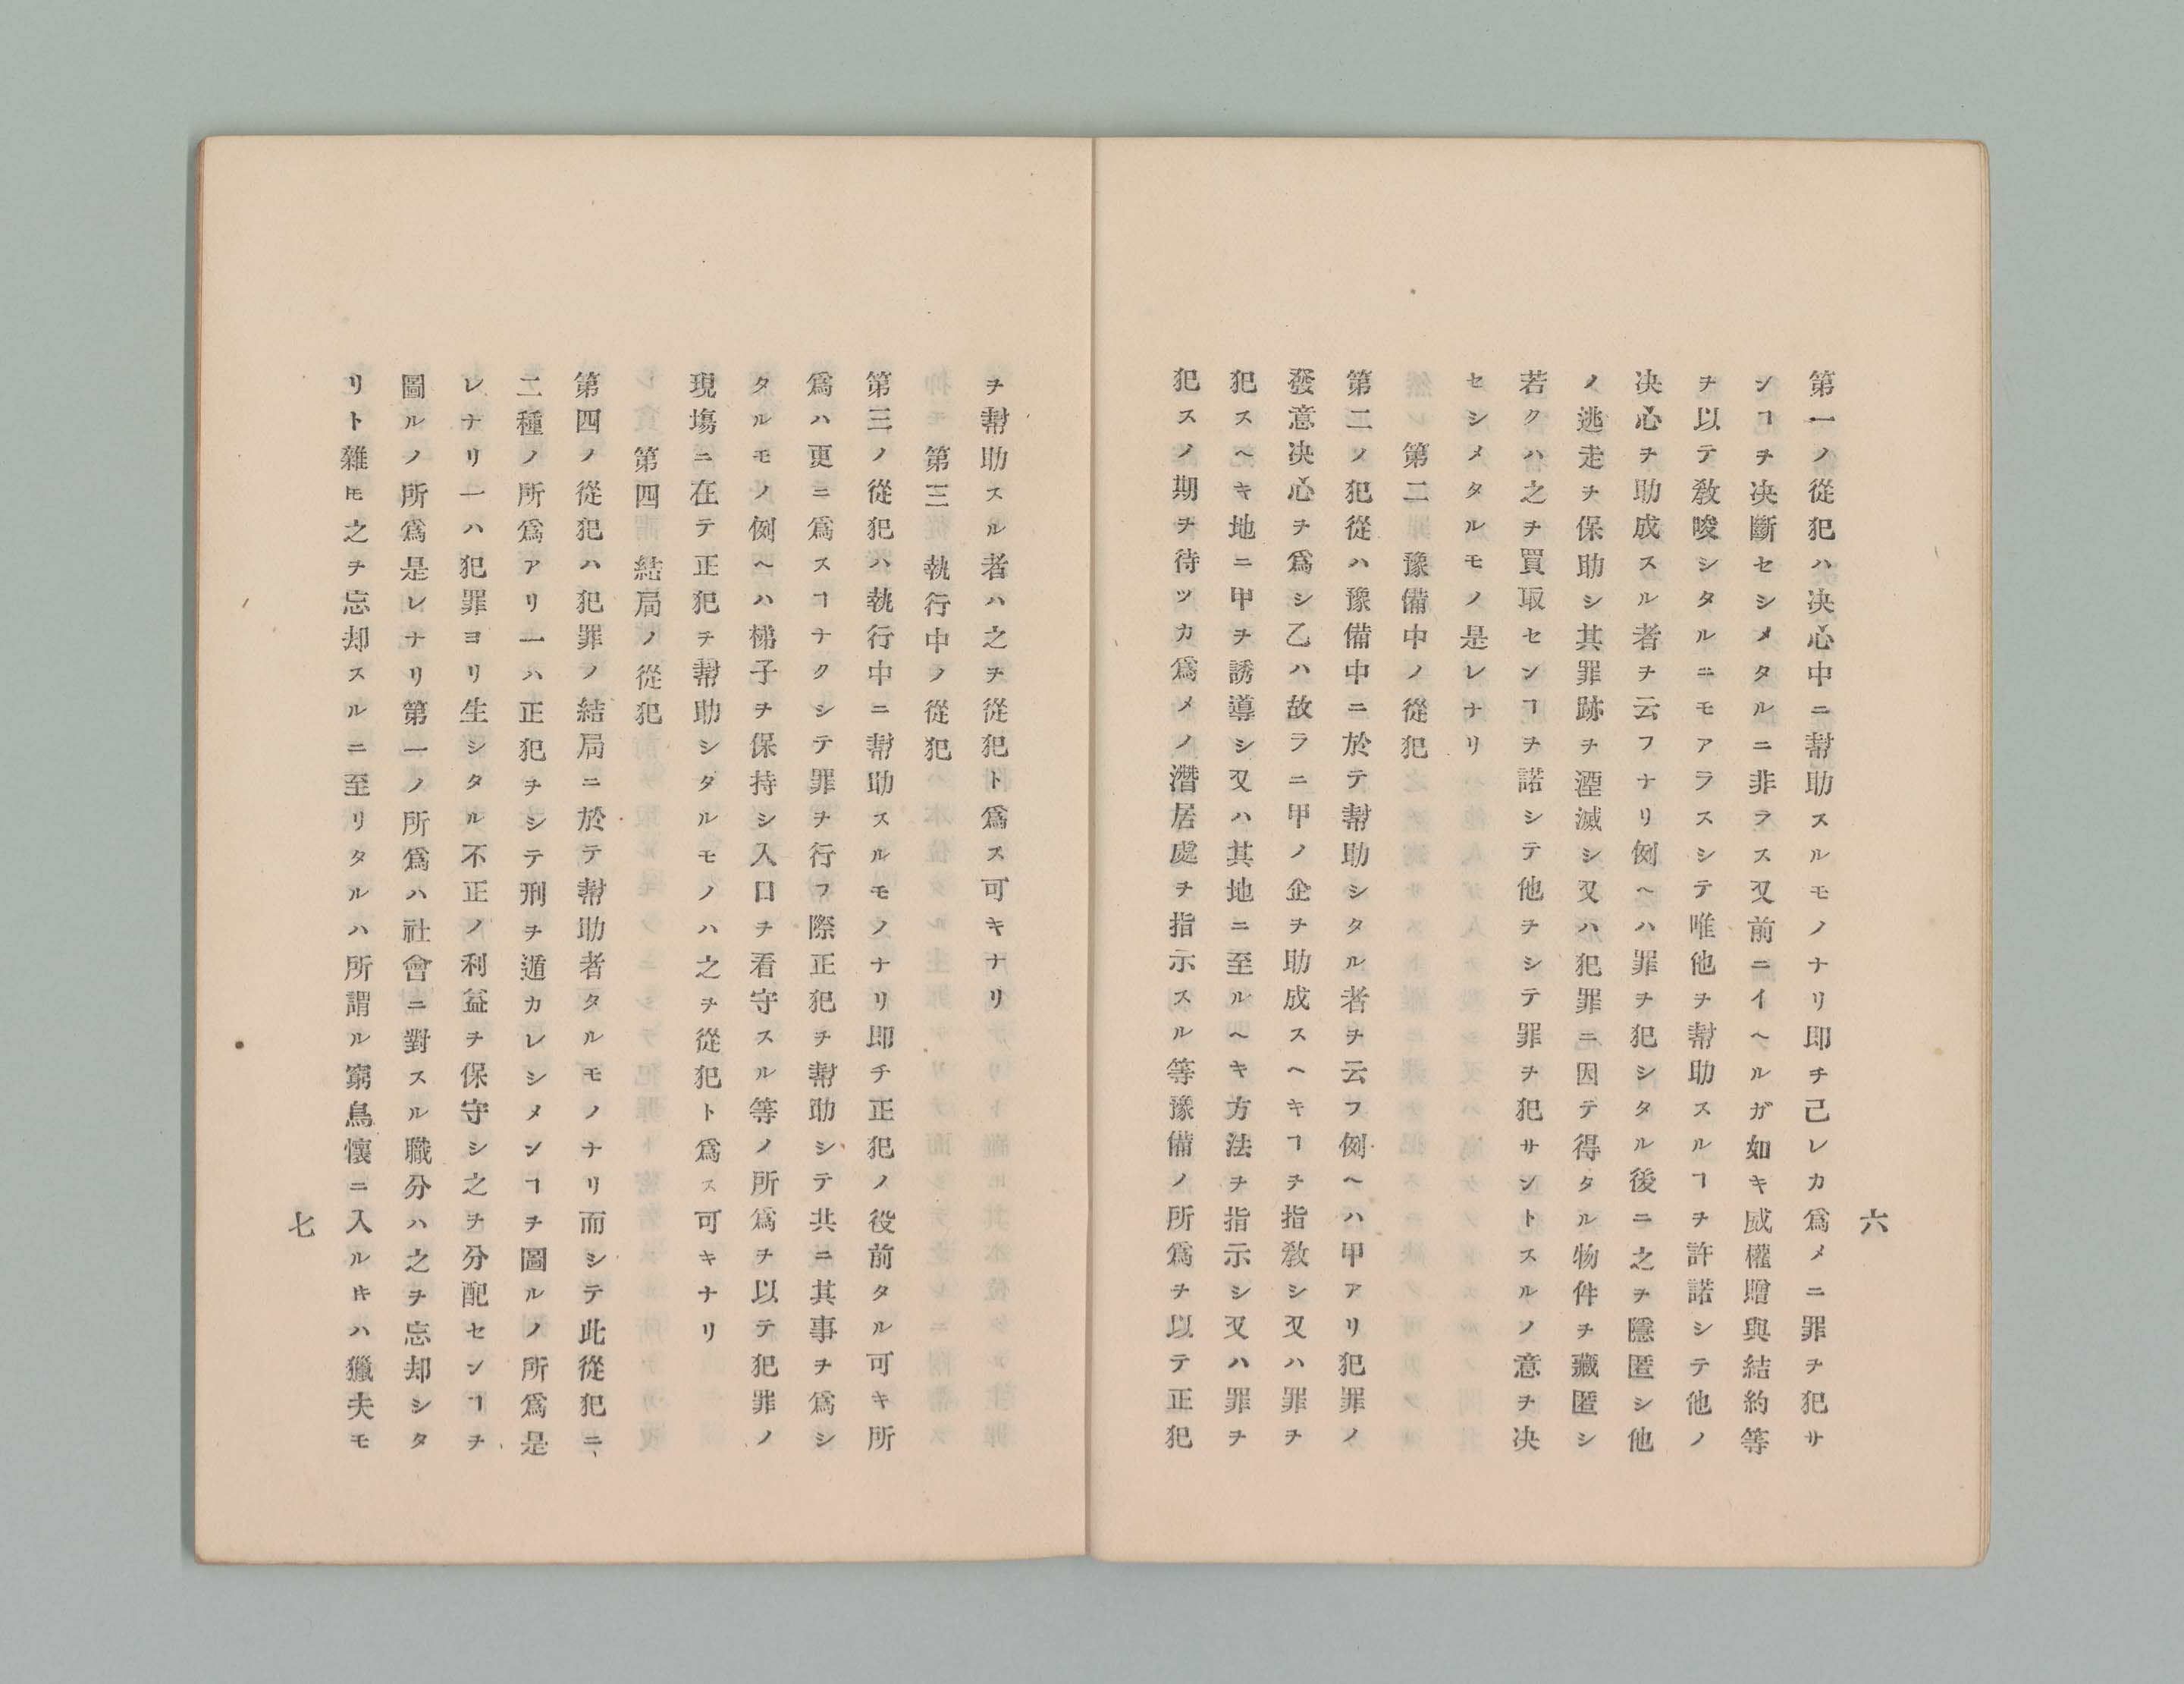 六
第一ノ從犯ハ决心中ニ幇助スルモノナリ即チ己レカ爲メニ罪ヲ犯サ
シヿヲ决斷セシメタルニ非ラス又前ニイヘルガ如キ威權贈與結約等
ヲ以テ敎唆シタルニモアラスシテ唯他ヲ幇助スルヿヲ許諾シテ他ノ
决心ヲ助成スル者ヲ云フナリ例ヘハ罪ヲ犯シタル後ニ之ヲ隱匿シ他
ノ逃走ヲ保助シ其罪跡ヲ湮滅シ又ハ犯罪ニ因テ得タル物件ヲ藏匿シ
若クハ之ヲ買取センヿヲ諾シテ他ヲシテ罪ヲ犯サントスルノ意ヲ决
セシメタルモノ是レナリ
第二　豫備中ノ從犯
第二ノ犯從ハ豫備中ニ於テ幇助シタル者ヲ云フ例ヘハ甲アリ犯罪ノ
發意决心ヲ爲シ乙ハ故ラニ甲ノ企ヲ助成スヘキヿヲ指敎シ又ハ罪ヲ
犯スヘキ地ニ甲ヲ誘導シ又ハ其地ニ至ルヘキ方法ヲ指示シ又ハ罪ヲ
犯スノ期ヲ待ツカ爲メノ潛居處ヲ指示スル等豫備ノ所爲ヲ以テ正犯
ヲ幇助スル者ハ之ヲ從犯ト爲ス可キナリ
第三　執行中ノ從犯
第三ノ從犯ハ執行中ニ幇助スルモノナリ即チ正犯ノ役前タル可キ所
爲ハ更ニ爲スヿナクシテ罪ヲ行フ際正犯ヲ幇助シテ共ニ其事ヲ爲シ
タルモノ例ヘハ梯子ヲ保持シ入口ヲ看守スル等ノ所爲ヲ以テ犯罪ノ
現塲ニ在テ正犯ヲ幇助シダルモノハ之ヲ從犯ト爲ス可キナリ
第四　結局ノ從犯
第四ノ從犯ハ犯罪ノ結局ニ於テ幇助者タルモノナリ而シテ此從犯ニ、
二種ノ所爲アリ一ハ正犯ヲシテ刑ヲ遁カレシメンヿヲ圖ルノ所爲是
レナリ一ハ犯罪ヨリ生シタル不正ノ利益ヲ保守シ之ヲ分配センヿヲ
圖ルノ所爲是レナリ第一ノ所爲ハ社會ニ對スル職分ハ之ヲ忘却シタ
リト雖𪜈之ヲ忘却スルニ至リタルハ所謂ル窮鳥懷ニ入ルキハ獵夫モ
七